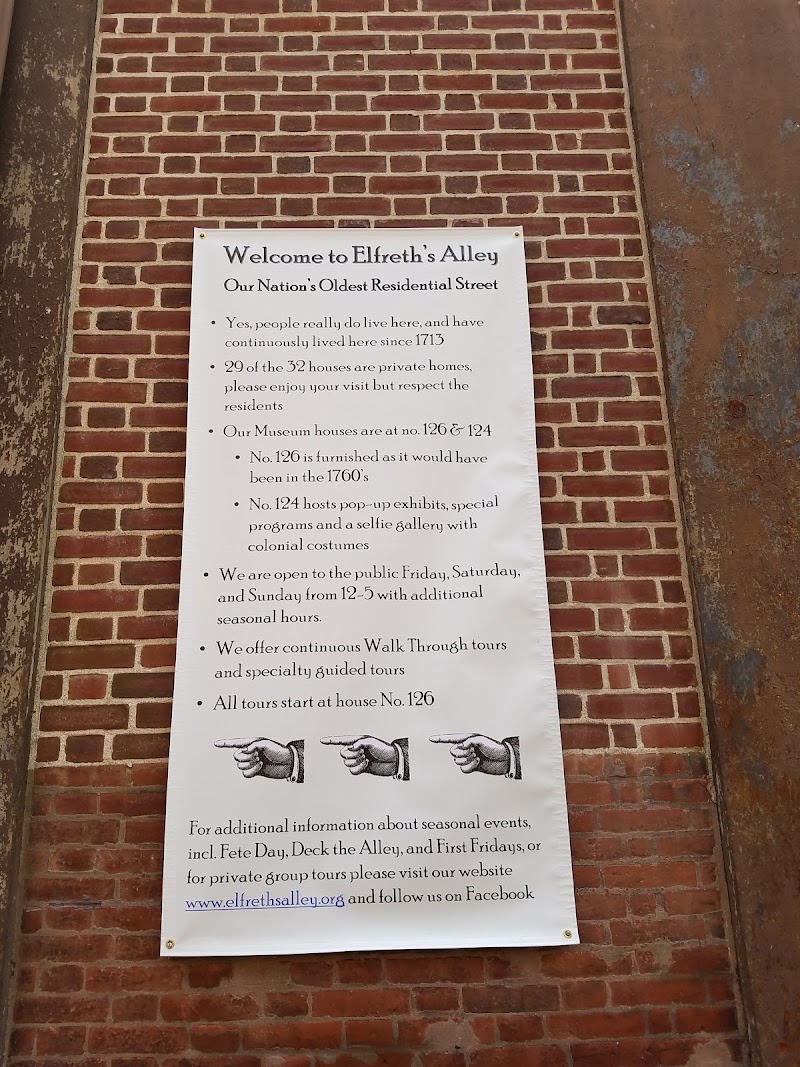 Welcome to Elfreth's Alley
Our Nation's Oldest Residential Street
• Yes, people really do live here, and have
continuously lived here since 1713
• 29 of the 32 houses are private homes,
please enjoy your visit but respect the
residents
• Our Museum houses are at no. 126 & 124
• No. 126 is furnished as it would have
been in the 1760's
• No. 124 hosts pop-up exhibits, special
programs and a selfie gallery with
colonial costumes
• We are open to the public Friday, Saturday,
and Sunday from 12-5 with additional
seasonal hours.
• We offer continuous Walk Through tours
and specialty guided tours
• All tours start at house No. 126
For additional information about seasonal events,
incl. Fete Day, Deck the Alley, and First Fridays, or
for private group tours please visit our website
www.elfrethsalley.org and follow us on Facebook